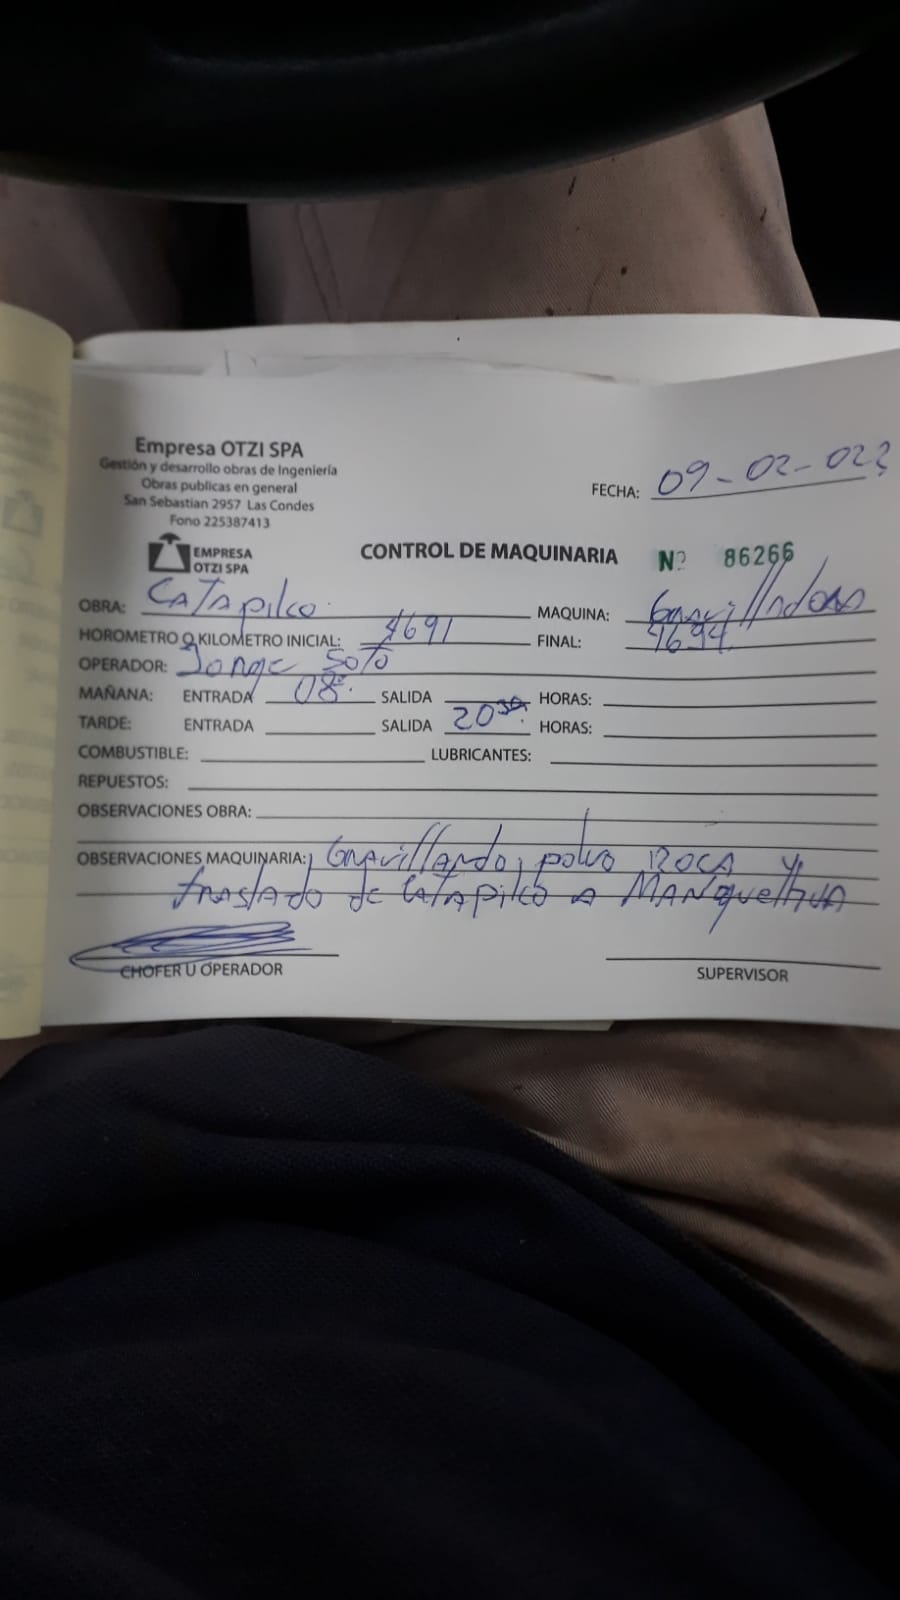 Empresa OTZI SPA
Gestión y desarrollo obras de Ingeniería
Obras publicas en general
San Sebastian 2957 Las Condes
Fono 225387413
EMPRESA
OTZI SPA
FECHA: 09-02-023
CONTROL DE MAQUINARIA Nº 86266
OBRA: Catapilco. MAQUINA: Gravilladora
HOROMETRO O KILOMETRO INICIAL: 4691 FINAL: 4694
OPERADOR: Jorge Soto
MAÑANA: ENTRADA 08. SALIDA HORAS:
TARDE: ENTRADA SALIDA 20 30 HORAS:
COMBUSTIBLE: LUBRICANTES:
REPUESTOS:
OBSERVACIONES OBRA:
OBSERVACIONES MAQUINARIA: Gravillando, polvo ROCA y
traslado de Catapilco a
CHOFER U OPERADOR SUPERVISOR